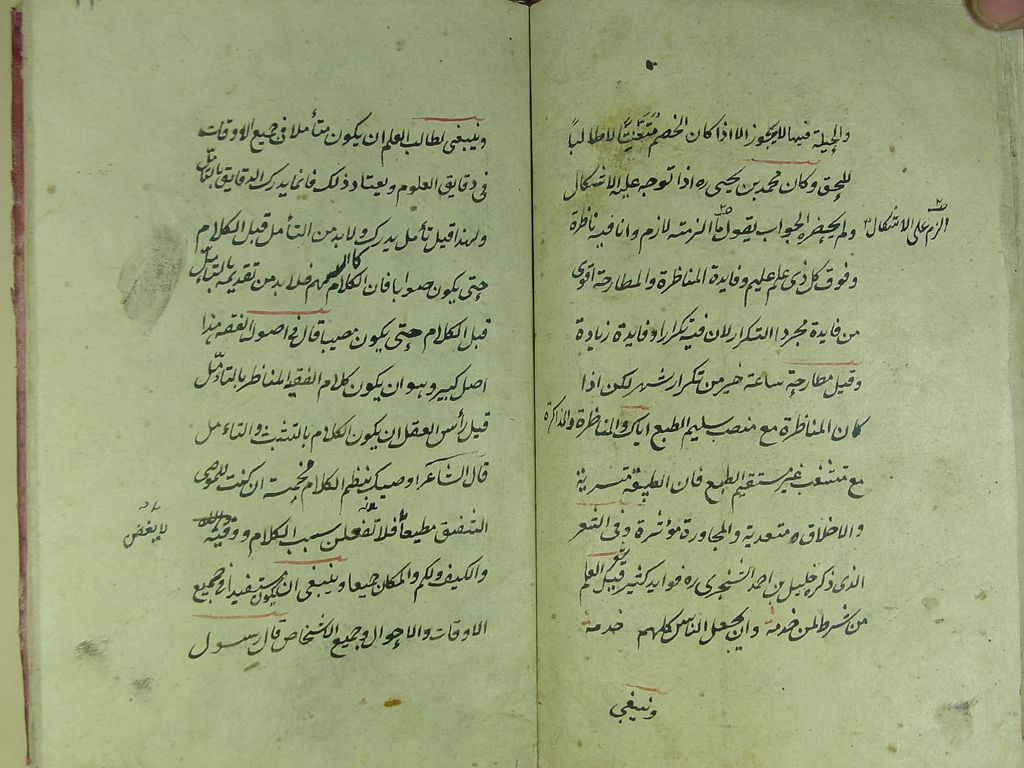 والحيلة فيها لا يجوز الا اذا كان الخصم متعنتا لا طالبا
للحق وكان محمد بن يحيى ره اذا توجه عليه الاشكال
ولم يحضره الجواب يقول ما الزمته لازم وانا فيه ناظرة
الزم على الاشكال
وفوق كل ذى علم عليم وفايدة المناظرة والمطارحة اقوى
من فايدة مجرد التكرار لان فيه تكرارا وفايدة زيادة
وقيل مطارحة ساعة خير من تكرار شهر لكن اذا
كان المناظرة مع منصب سليم الطبع اياك والمناظرة والمذاكرة
مع متشغب غير مستقيم الطبع فان الطبيعة متسرية
والاخلاق متعدية والمجاورة مؤثرة وفى الشعر
الذى ذكر خليل بن احمد السنجرى ره فوايد كثير قيل العلم
من شرط لمن خدمه وان يجعل الناس كلهم خدمه
وينبغى
وينبغى لطالب العلم ان يكون متأملا فى جميع الاوقات
فى دقايق العلوم ويعتاد ذلك فانما يدرك الدقايق بالتأمل
ولهذا قيل تأمل يدرك ولا بد من التأمل قبل الكلام
حتى يكون صوابا فان الكلام كالسهم فلا بد من تقديمه بالتأمل
قبل الكلام حتى يكون مصيبا قال فى اصول الفقه هذا
اصل كبير وهو ان يكون كلام الفقيه المناظر بالتأمل
قيل رأس العقل ان يكون الكلام بالتثبت والتاءمل
قال الشاعر اوصيك بنظم الكلام خمسة ان كنت للموصى
الشفيق مطيعا لا تغفلن سبب الكلام ووقته
والكيف والكم والمكان جميعا وينبغى ان يكون مستفيدا فى جميع
الاوقات والاحوال وجميع الاشخاص قال رسول